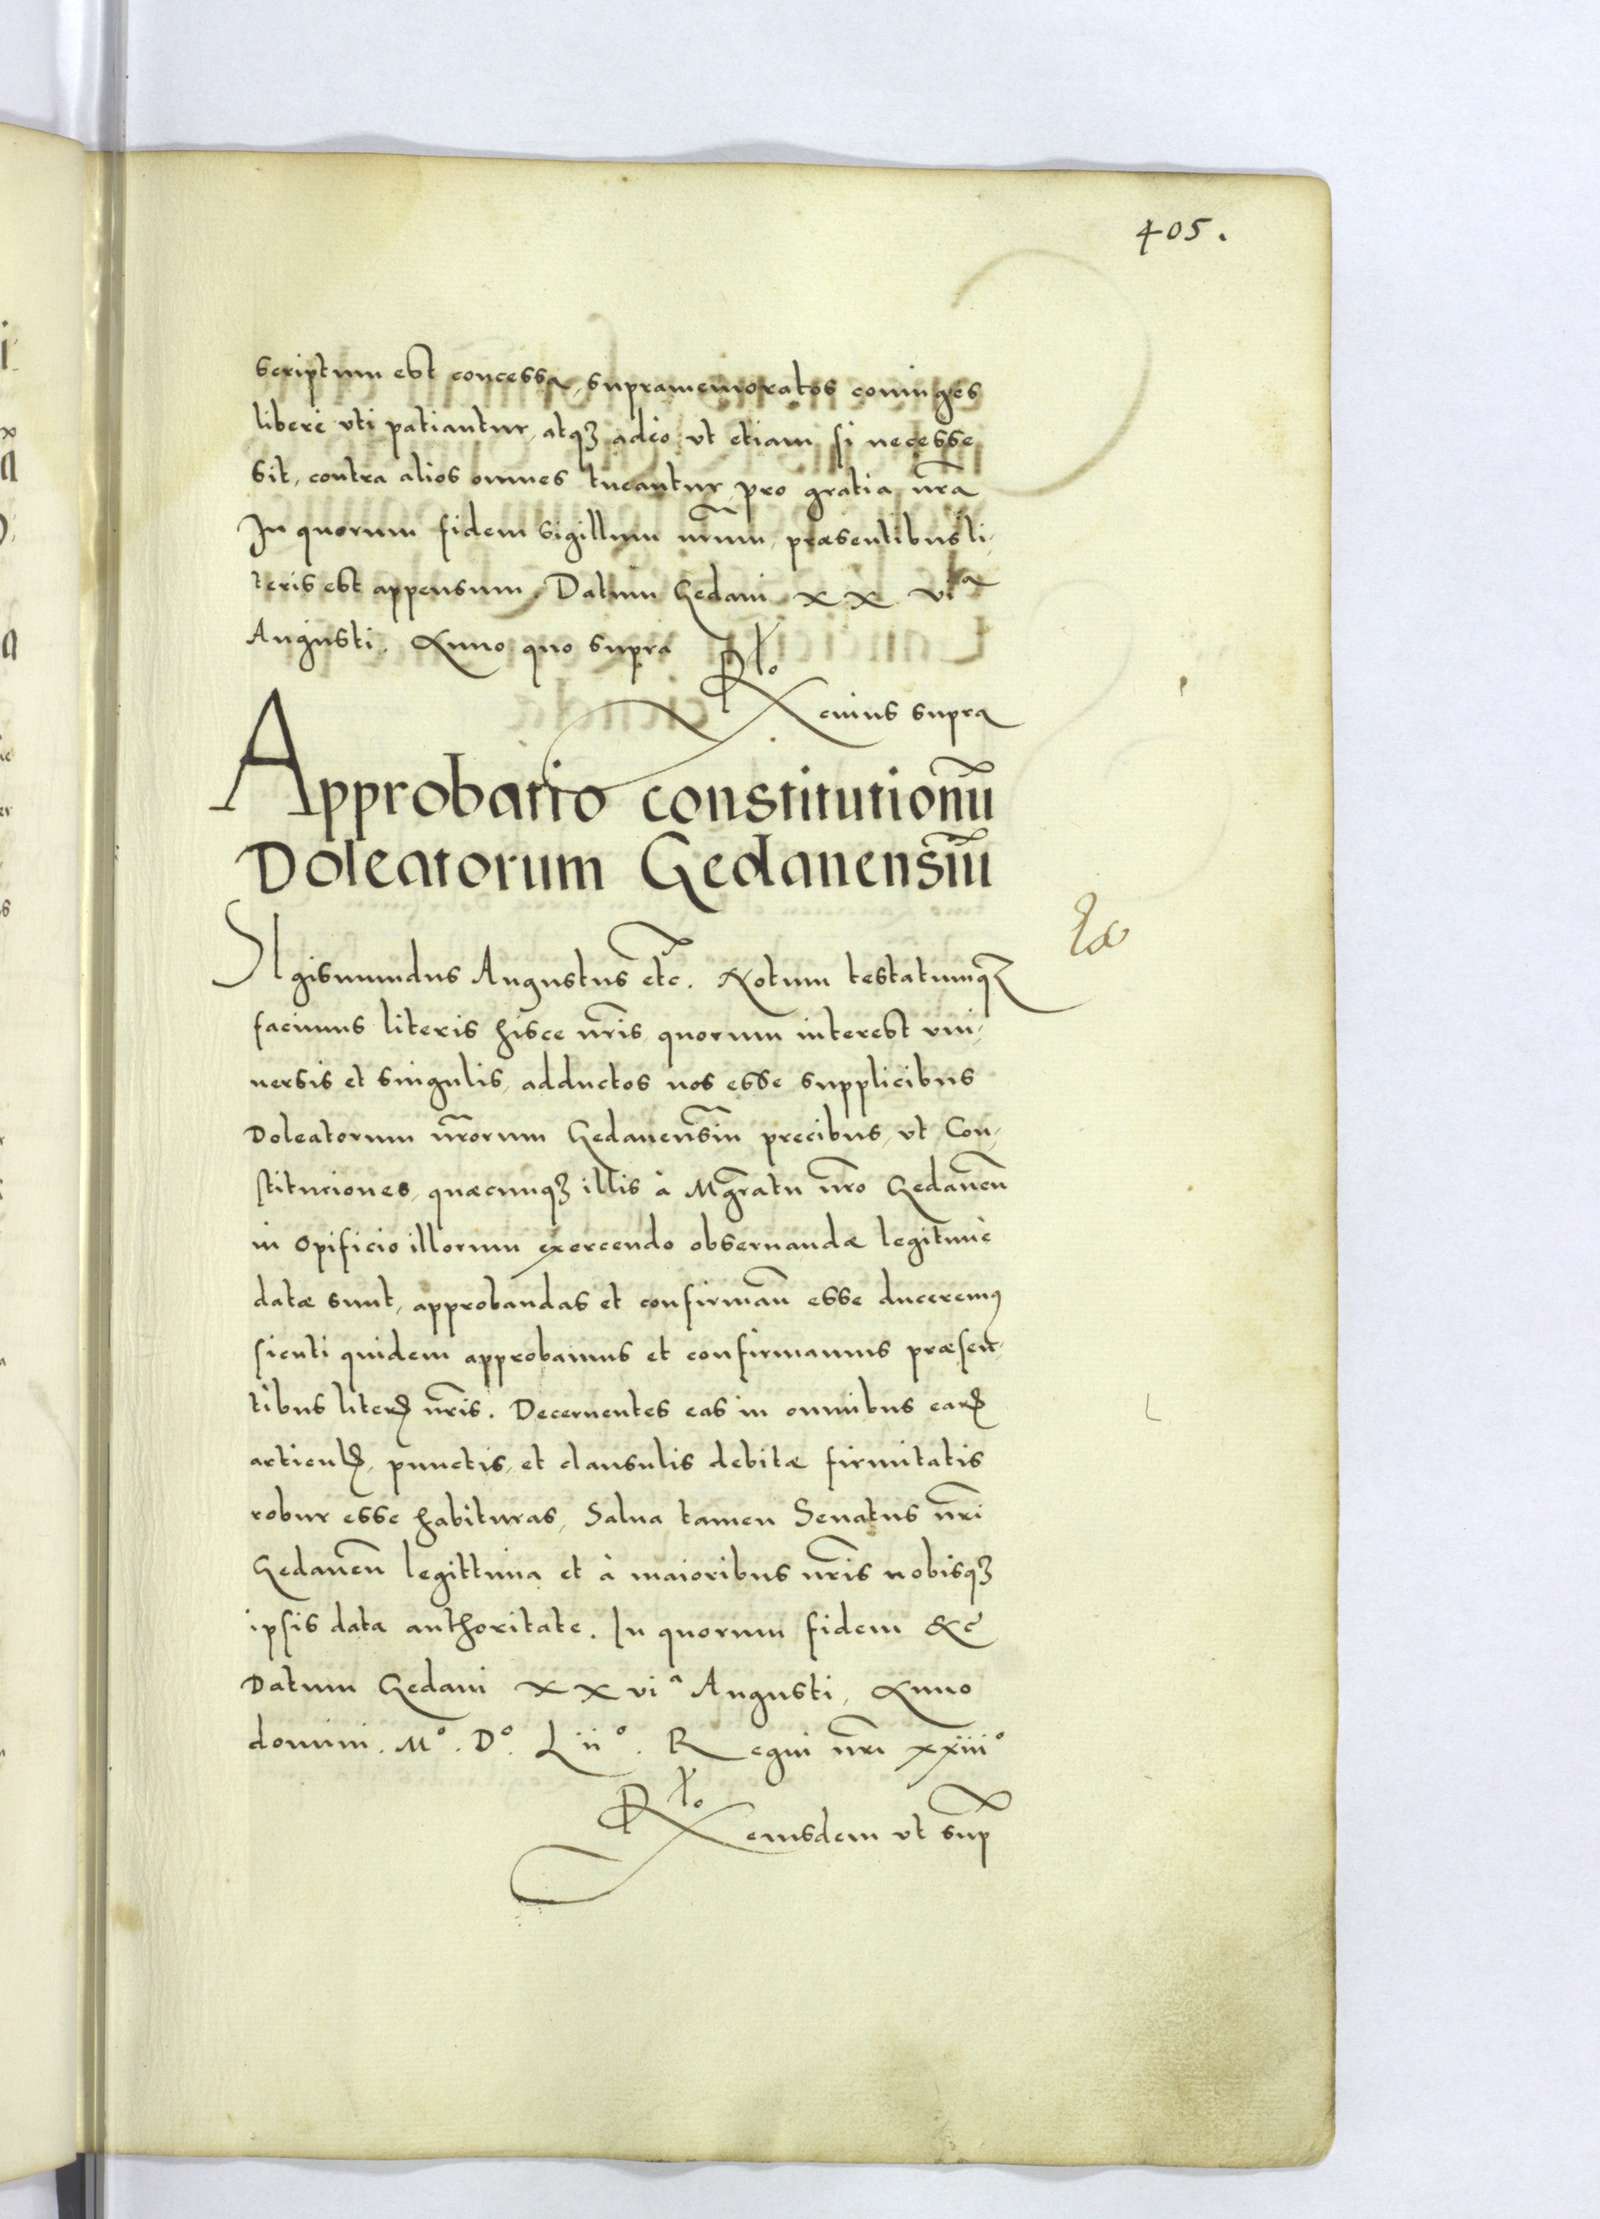 405.
scriptum est concessa, supramemoratos coniuges
libere vti patiantur, atqꝫ adeo vt etiam si necesse
sit, contra alios omnes tueantur, pro gratia nr̃a
In quorum fidem sigillum nr̃um, præsentibus li,
teris est appensum, Datum Gedani xx viᵃ
Augusti. Anno quo supra
Rᵗᵒ
cuius supra
Approbatio constitutionũ
Doleatorum Gedanensiũ
SIgismundus Augustus etc̃. Notum testatumqꝫ
facimus literis hisce nr̃is, quorum interest vni,
uersis et singulis, adductos nos esse supplicibus
Doleatorum nr̃orum Gedanensiũ precibus, vt Con,
stituciones, quæcunqꝫ illis à Mgr̃atu nr̃o Gedaneñ
in opificio illorum exercendo obseruandæ legitimè
datæ sunt, approbandas et confirmañ esse duceremꝰ
sicuti quidem approbamus et confirmamus præsen,
tibus literꝭ nr̃is. Decernentes eas in omnibus earꝭ
articulꝭ, punctis, et clausulis debitæ firmitatis
robur esse habituras, Salua tamen Senatus nr̃i
Gedaneñ legittima et à maioribus nr̃is nobisqꝫ
ipsis data authoritate. In quorum fidem &c̃
Datum Gedani xx viᵃ Augusti, Anno
domini. Mº. Dº. Liiº. Regni nr̃i xxiiiº
Rᵗᵒ
eiusdem vt sup̃